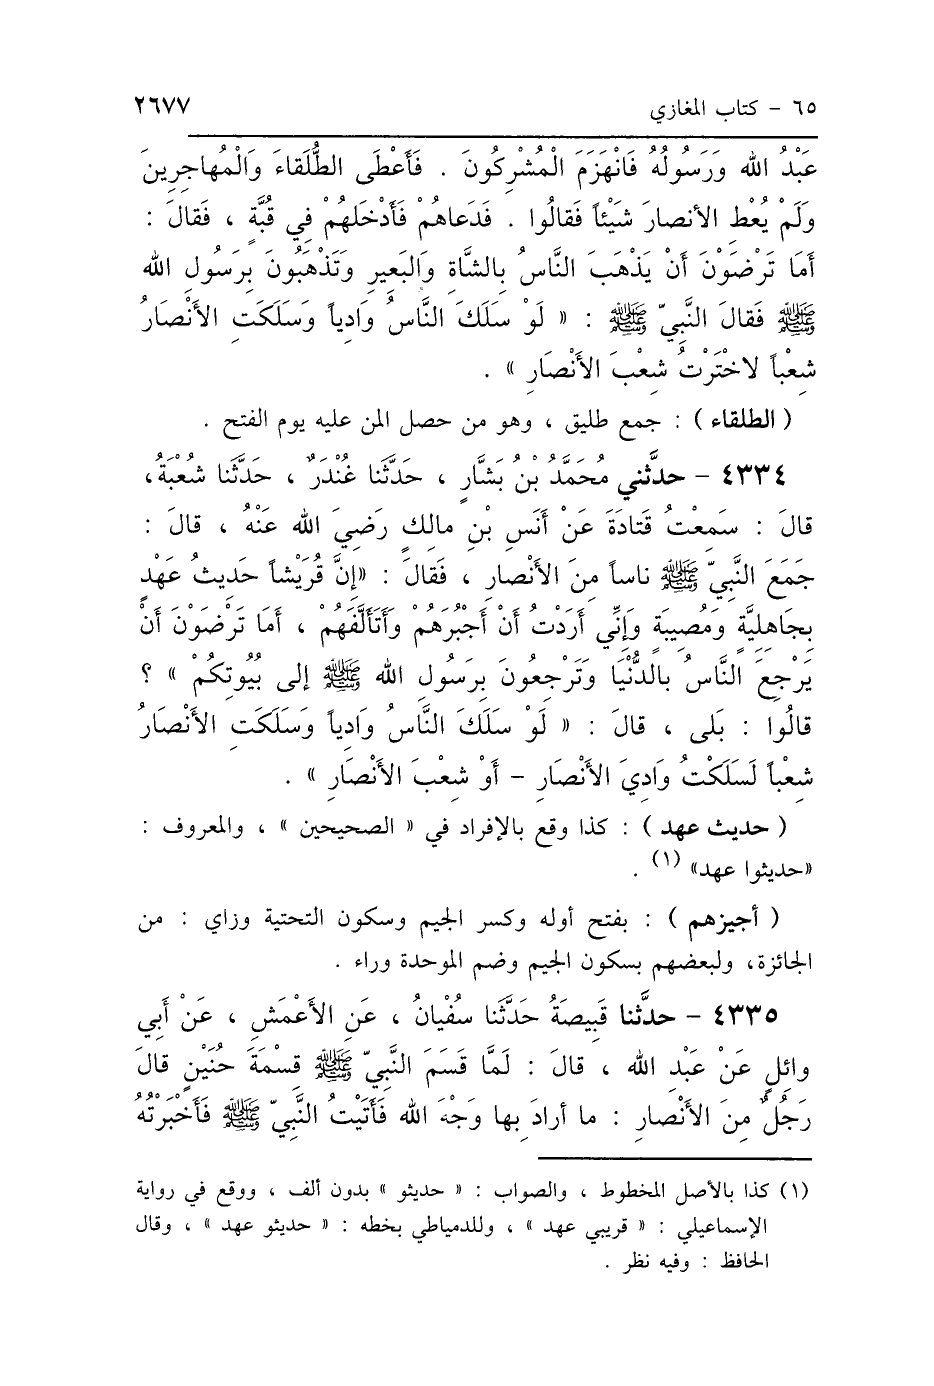 ٦٥ - كتاب المغازي ٢٦٧٧
عَبْدُ الله وَرَسُولُهُ فَانْهَزَمَ الْمُشْرِكُونَ . فَأَعْطَى الطُّلَقاءَ وَالْمُهاجِرِينَ
وَلَمْ يُعْطِ الأنصارَ شَيْئاً فَقالُوا . فَدَعاهُمْ فَأَدْخَلهُمْ فِي قُبَّةٍ ، فَقالَ :
أَمَا تَرْضَوْنَ أَنْ يَذْهَبَ النَّاسُ بِالشَّاةِ وَالبَعِيرِ وَتَذْهَبُونَ بِرَسُولِ الله
ﷺ فَقالَ النَّبِيّ ﷺ : « لَوْ سَلَكَ النَّاسُ وَادِياً وَسَلَكَتِ الأَنْصَارُ
شِعْباً لاخْتَرْتُ شِعْبَ الأَنْصَارِ » .
( الطلقاء ) : جمع طليق ، وهو من حصل المن عليه يوم الفتح .
٤٣٣٤ - حدَّثني مُحَمَّدُ بْنُ بَشَّارٍ ، حَدَّثَنا غُنْدَرٌ ، حَدَّثَنا شُعْبَةُ،
قالَ : سَمِعْتُ قَتادَةَ عَنْ أَنَسِ بْنِ مالِكٍ رَضِيَ الله عَنْهُ ، قالَ :
جَمَعَ النَّبِيّ ﷺ ناساً مِنَ الأَنْصارِ ، فَقالَ : «إنَّ قُرَيْشاً حَدِيثُ عَهْدٍ
بِجَاهِلِيَّةٍ وَمُصِيبَةٍ وَإِنِّي أَرَدْتُ أَنْ أَجْبُرَهُمْ وَأَتَأَلَّفَهُمْ ، أَمَا تَرْضَوْنَ أَنْ
يَرْجِعَ النَّاسُ بالدُّنْيَا وَتَرْجِعُونَ بِرَسُولِ الله ﷺ إلى بُيُوتِكُمْ » ؟
قالُوا : بَلى ، قالَ : « لَوْ سَلَكَ النَّاسُ وَادِياً وَسَلَكَتِ الأَنْصَارُ
شِعْباً لَسَلَكْتُ وَادِيَ الأَنْصَارِ - أَوْ شِعْبَ الأَنْصَارِ » .
( حديث عهد ) : كذا وقع بالإفراد في « الصحيحين » ، والمعروف :
«حديثوا عهد» (١) .
( أجيزهم ) : بفتح أوله وكسر الجيم وسكون التحتية وزاي : من
الجائزة، ولبعضهم بسكون الجيم وضم الموحدة وراء .
٤٣٣٥ - حدَّثنا قَبِيصَةُ حَدَّثَنا سُفْيانُ ، عَنِ الأَعْمَشِ ، عَنْ أَبي
وائِلٍ عَنْ عَبْدِ الله ، قالَ : لَمَّا قَسَمَ النَّبِيّ ﷺ قِسْمَةَ حُنَيْنٍ قالَ
رَجُلٌ مِنَ الأَنْصارِ : ما أرادَ بِها وَجْهَ الله فَأَتَيْتُ النَّبِيّ ﷺ فَأَخْبَرْتُهُ
(١) كذا بالأصل المخطوط ، والصواب : « حديثو » بدون ألف ، ووقع في رواية
الإسماعيلي : « قريبي عهد » ، وللدمياطي بخطه : « حديثو عهد » ، وقال
الحافظ : وفيه نظر .